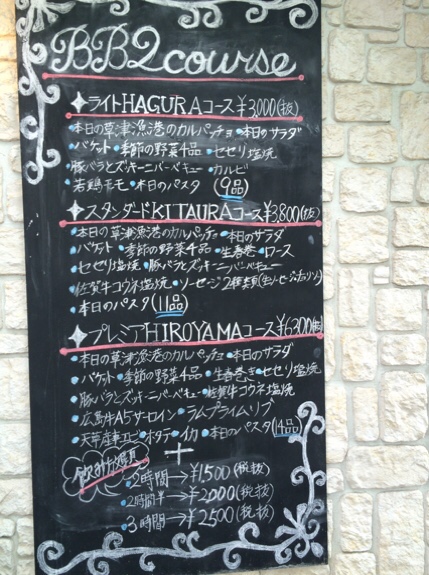 BBQ course
ライトHAGURAコース¥3,000(抜)
・本日の草津漁港のカルパッチョ・本日のサラダ
・バケット・季節の野菜4品・セセリ塩焼
・豚バラとズッキーニバーベキュー・カルビ
・若鶏モモ・本日のパスタ(9品)
スタンダードKITAURAコース¥3,800(抜)
・本日の草津漁港のカルパッチョ・本日のサラダ
・バケット・季節の野菜4品・生春巻・ロース
・セセリ塩焼・豚バラとズッキーニバーベキュー
・佐賀牛コウネ塩焼・ソーセージ2種類
・本日のパスタ(11品)
プレミアHIROYAMAコース¥6300(抜)
・本日の草津漁港のカルパッチョ・本日のサラダ
・バケット・季節の野菜4品・生春巻き・セセリ塩焼
・豚バラとズッキーニバーベキュー・佐賀牛コウネ塩焼
・広島牛A5サーロイン・ラムプライムリブ
・天然車エビ・ホタテ・イカ・本日のパスタ(14品)
+
飲み放題
・2時間→¥1,500(税抜)
・2時間半→¥2,000(税抜)
・3時間→¥2,500(税抜)